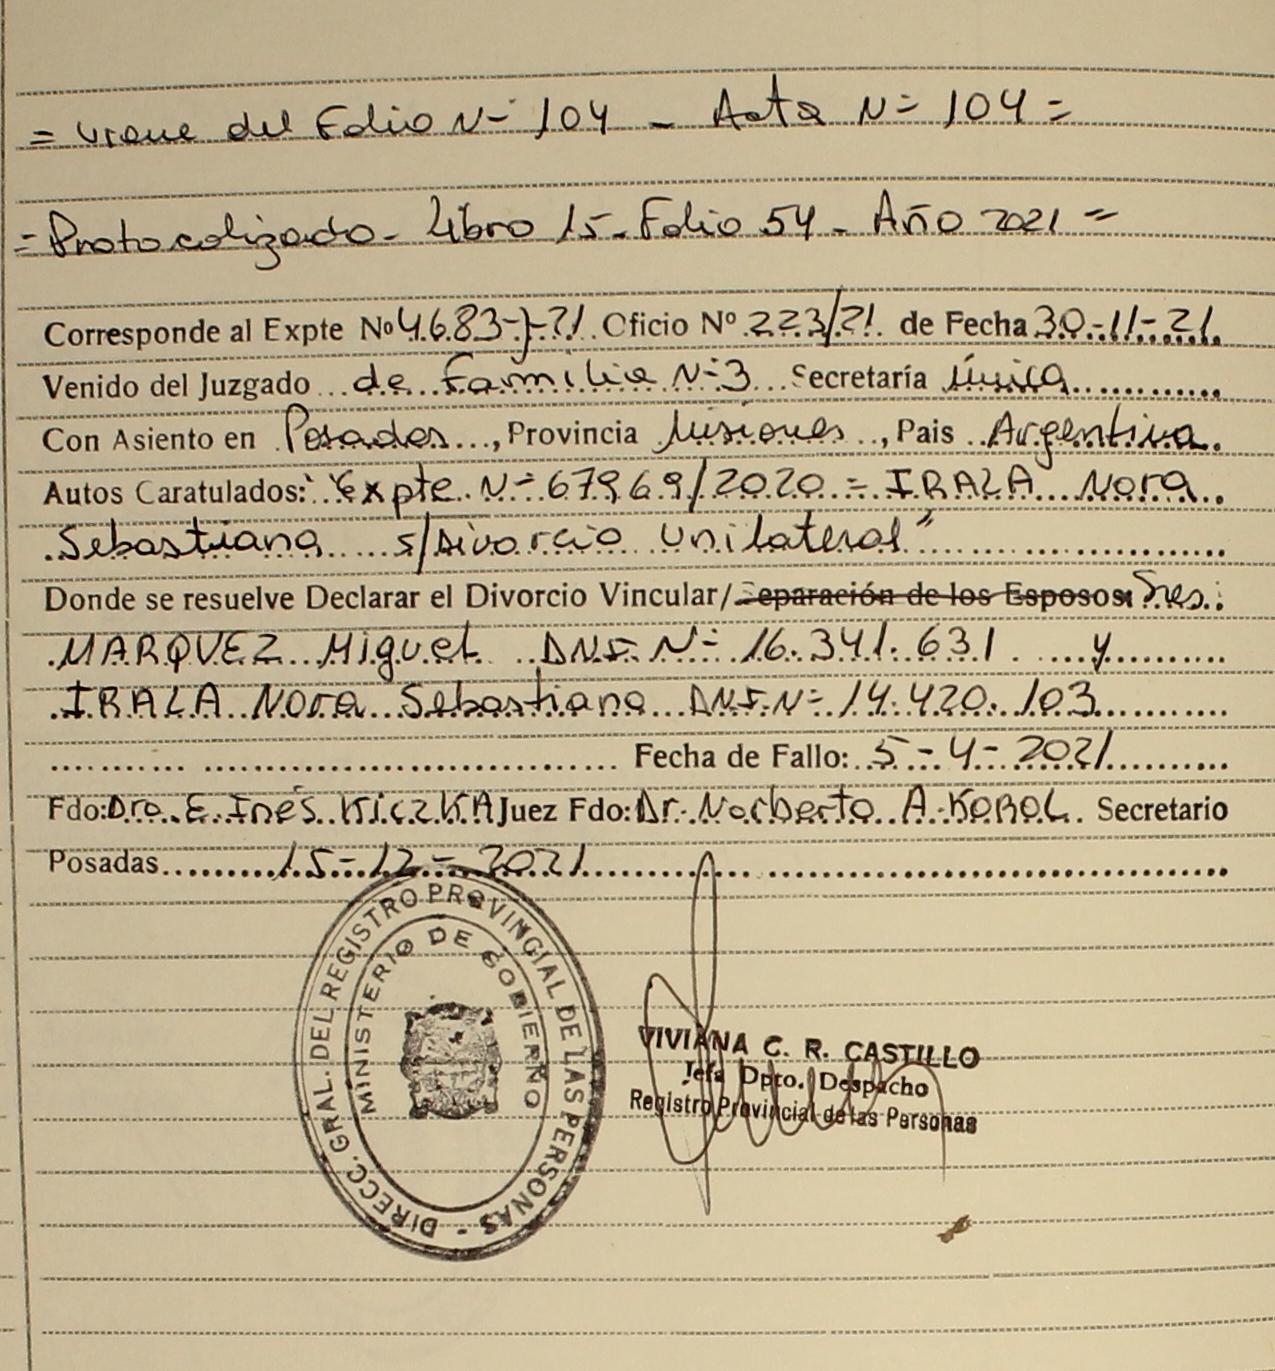 = viene del Folio N- 104 - Acta N= 104 =
= Protocolizado - Libro 15 - Folio 54 - Año 2021 =
Corresponde al Expte Nº 4683-J-21 Oficio Nº 223/21 de Fecha 30-11-21
Venido del Juzgado de Familia N-3 Secretaría única
Con Asiento en Posadas, Provincia Misiones, Pais Argentina.
Autos Caratulados: "Expte N- 67969/2020 = IRALA Nora
Sebastiana s/Divorcio Unilateral"
Donde se resuelve Declarar el Divorcio Vincular/Separación de los Esposos: Sres:
MARQUEZ Miguel DNI N- 16.341.631 y
IRALA Nora Sebastiana DNI N- 14.420.103
Fecha de Fallo: 5-4-2021
Fdo: Dra. E. Inés KICZKA Juez Fdo: Dr. Norberto A. KOROL. Secretario
Posadas 15-12-2021
DIRECC. GRAL. DEL REGISTRO PROVINCIAL DE LAS PERSONAS -
MINISTERIO DE GOBIERNO
VIVIANA C. R. CASTILLO
Jefa Dpto. Despacho
Registro Provincial de las Personas